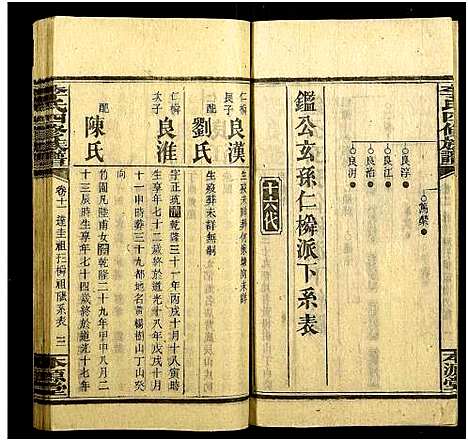 李氏四修族譜
良淳
良治
良洞
萬榮
鑑公玄孫仁橉派下系表
十六代
仁橉長子
良漢
生歿葬未
配
劉氏
生歿葬未詳無嗣
仁橉次子
良淮
字正
乾隆三十一年丙戌十月十八寅時
生享年七十三歲終於道光十八年戊戌十月
十一申時葬三十九都地名黃楊樹山丁山癸
向
配
陳氏
竹園凡陸甫女
乾隆二十九年甲申八月二
十三辰時生享年七十四歲終於道光十七年
李氏四修族譜
卷十一
達圭祖
橉祖
系表
本源堂